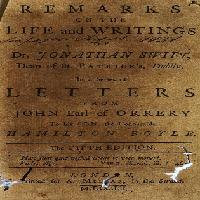 REMARKS
ON THE
LIFE and WRITINGS
OF
Dr. JONATHAN SWIFT,
Dean of St. PATRICK's, Dublin,
In a Series of
LETTERS
FROM
JOHN Earl of ORRERY
To his SON, the Honourable
HAMILTON BOYLE.
The FIFTH EDITION.
LONDON,
Printed for A. MILLAR, in the Strand.